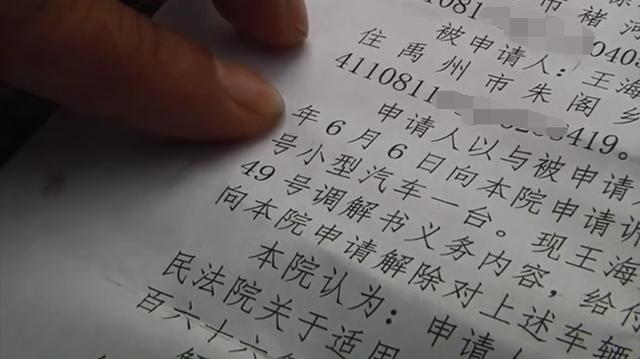 市褚河
411081 040
被申请人：王海
住禹州市朱阁乡
4110811 419。
申请人以与被申请
年6月6日向本院申请诉
号小型汽车一台。现王海
49号调解书义务内容，给付
向本院申请解除对上述车辆
本院认为：申请
民法院关于适用
百六十六